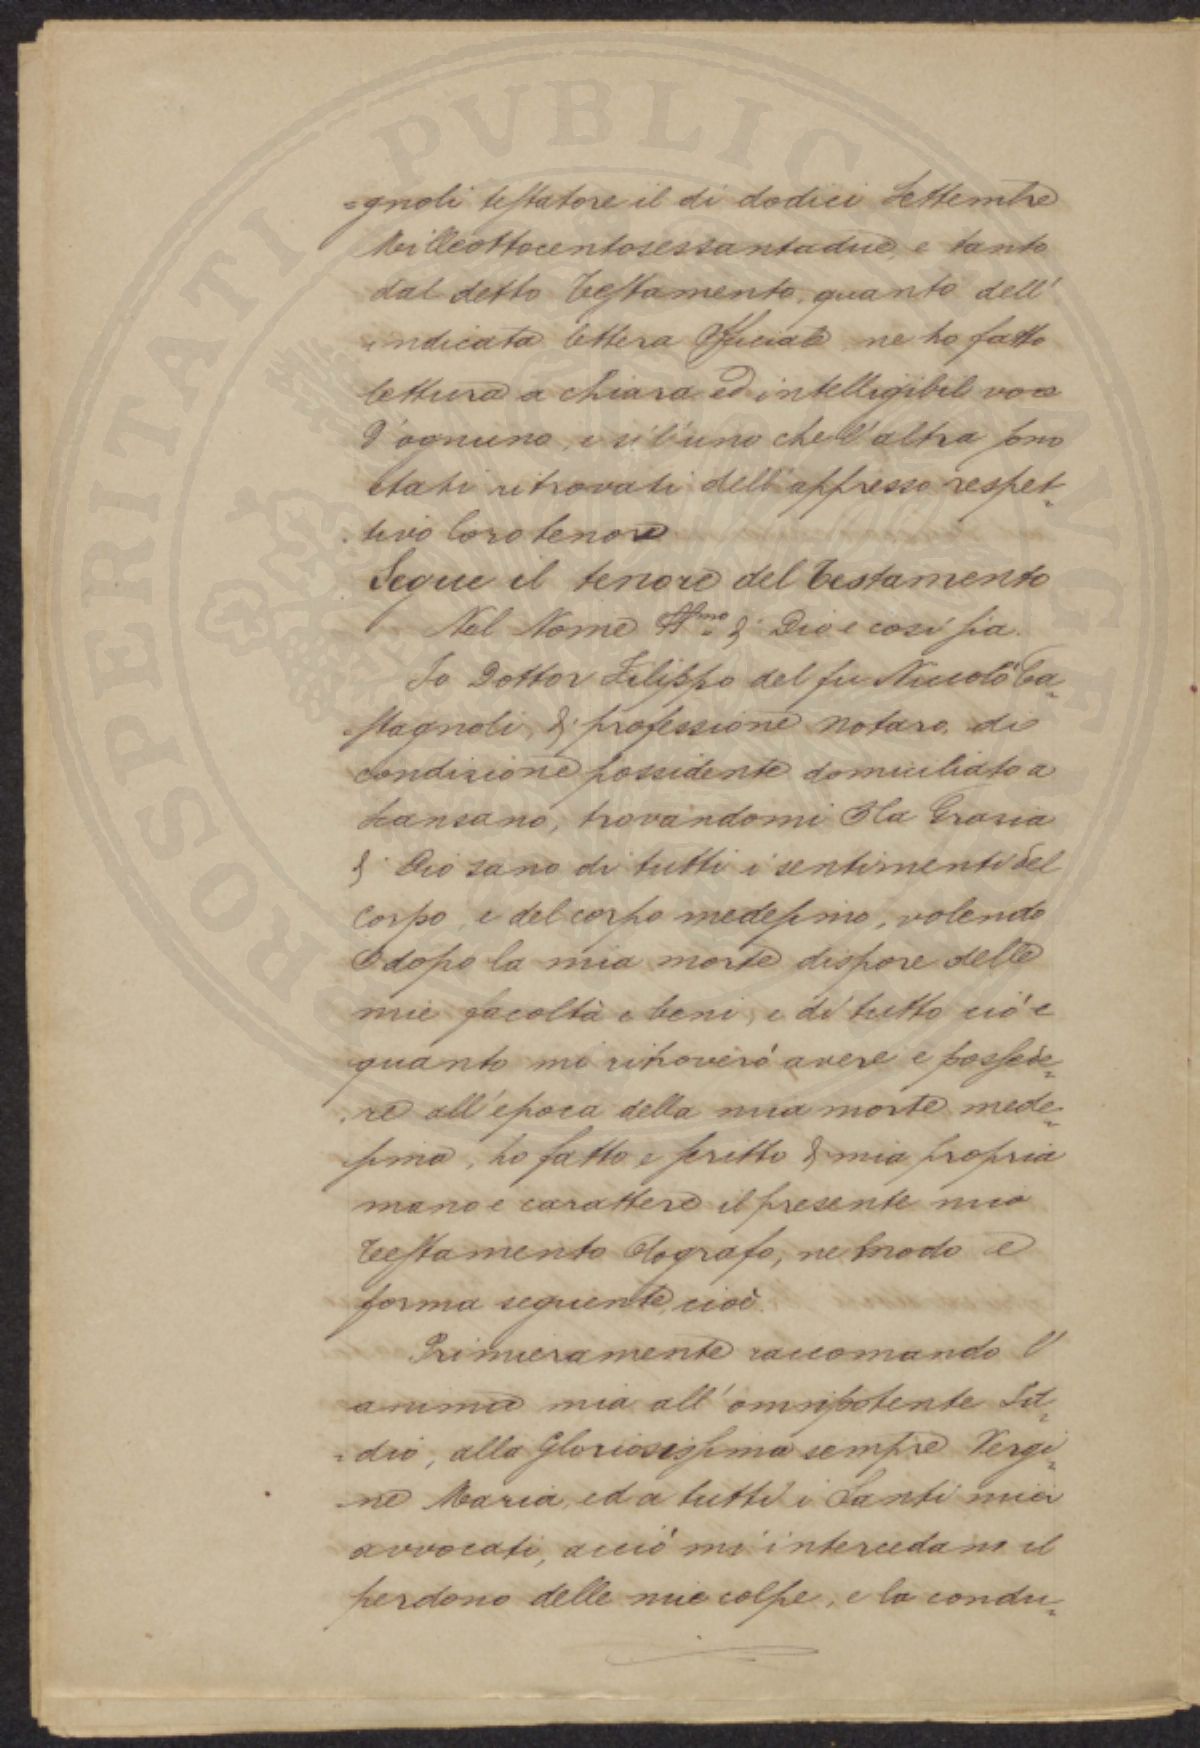 =gnoli testatore il di dodici Settembre
Milleottocentosessantadue, e tanto
dal detto Testamento, quanto dell'
indicata lettera Officiale, ne ho fatto
lettura a chiara ed intelligibile voce
d'ognuno, e sì l'uno che l'altra sono
stati ritrovati dell'appresso respet=
=tivo loro tenore
Segue il tenore del Testamento
Nel Nome SSmo di Dio e così sia.
Io Dottor Filippo del fu Niccolò Ca=
=stagnoli, di professione notaro, di
condizione possidente domiciliato a
trovandomi Dla Grazia
di Dio sano di tutti i sentimenti del
Corpo, e del corpo medesimo, volendo
dopo la mia morte dispore delle
mie facoltà e beni, e di tutto ciò e
quanto mi ritroverò avere e possede=
=re all'epoca della mia morte mede=
sima, ho fatto e scritto di mia propria
mano e carattere il presente mio
Testamento Olografo, nel modo e
forma seguente, cioè.
Primieramente raccomando l'
anima mia all'omnipotente Id=
=dio, alla Gloriosissima sempre Vergi=
=ne Maria, ed a tutti i Santi miei
avvocati, acciò mi intercedano il
perdono delle mie colpe, e la condu=
PROSPERITATI PVBLICAE AVGENDAE